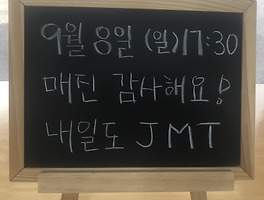 9월 8일 (일) 17:30
매진 감사해요!
내일도 JMT